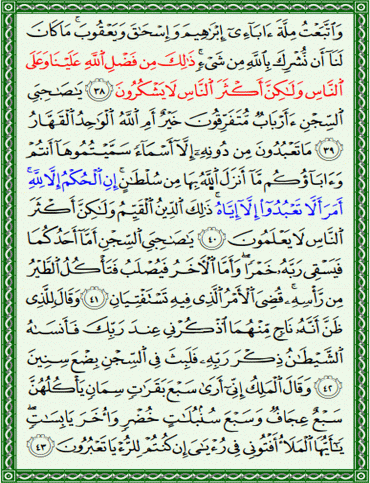 وَاتَّبَعْتُ مِلَّةَ ءَابَآءِىٓ إِبْرَٰهِيمَ وَإِسْحَٰقَ وَيَعْقُوبَ ۚ مَا كَانَ
لَنَآ أَن نُّشْرِكَ بِاللَّهِ مِن شَىْءٍ ۚ ذَٰلِكَ مِن فَضْلِ اللَّهِ عَلَيْنَا وَعَلَى
النَّاسِ وَلَٰكِنَّ أَكْثَرَ النَّاسِ لَا يَشْكُرُونَ ﴿٣٨﴾ يَٰصَٰحِبَىِ
السِّجْنِ ءَأَرْبَابٌ مُّتَفَرِّقُونَ خَيْرٌ أَمِ اللَّهُ الْوَٰحِدُ الْقَهَّارُ
﴿٣٩﴾ مَا تَعْبُدُونَ مِن دُونِهِۦٓ إِلَّآ أَسْمَآءً سَمَّيْتُمُوهَآ أَنتُمْ
وَءَابَآؤُكُم مَّآ أَنزَلَ اللَّهُ بِهَا مِن سُلْطَٰنٍ ۚ إِنِ الْحُكْمُ إِلَّا لِلَّهِ ۚ
أَمَرَ أَلَّا تَعْبُدُوٓا إِلَّآ إِيَّاهُ ۚ ذَٰلِكَ الدِّينُ الْقَيِّمُ وَلَٰكِنَّ أَكْثَرَ
النَّاسِ لَا يَعْلَمُونَ ﴿٤٠﴾ يَٰصَٰحِبَىِ السِّجْنِ أَمَّآ أَحَدُكُمَا
فَيَسْقِى رَبَّهُۥ خَمْرًا ۖ وَأَمَّا الْءَاخَرُ فَيُصْلَبُ فَتَأْكُلُ الطَّيْرُ
مِن رَّأْسِهِۦ ۚ قُضِىَ الْأَمْرُ الَّذِى فِيهِ تَسْتَفْتِيَانِ ﴿٤١﴾ وَقَالَ لِلَّذِى
ظَنَّ أَنَّهُۥ نَاجٍ مِّنْهُمَا اذْكُرْنِى عِندَ رَبِّكَ فَأَنسَىٰهُ
الشَّيْطَٰنُ ذِكْرَ رَبِّهِۦ فَلَبِثَ فِى السِّجْنِ بِضْعَ سِنِينَ
﴿٤٢﴾ وَقَالَ الْمَلِكُ إِنِّىٓ أَرَىٰ سَبْعَ بَقَرَٰتٍ سِمَانٍ يَأْكُلُهُنَّ
سَبْعٌ عِجَافٌ وَسَبْعَ سُنۢبُلَٰتٍ خُضْرٍ وَأُخَرَ يَابِسَٰتٍ ۖ
يَٰٓأَيُّهَا الْمَلَأُ أَفْتُونِى فِى رُءْيَٰىَ إِن كُنتُمْ لِلرُّءْيَا تَعْبُرُونَ ﴿٤٣﴾